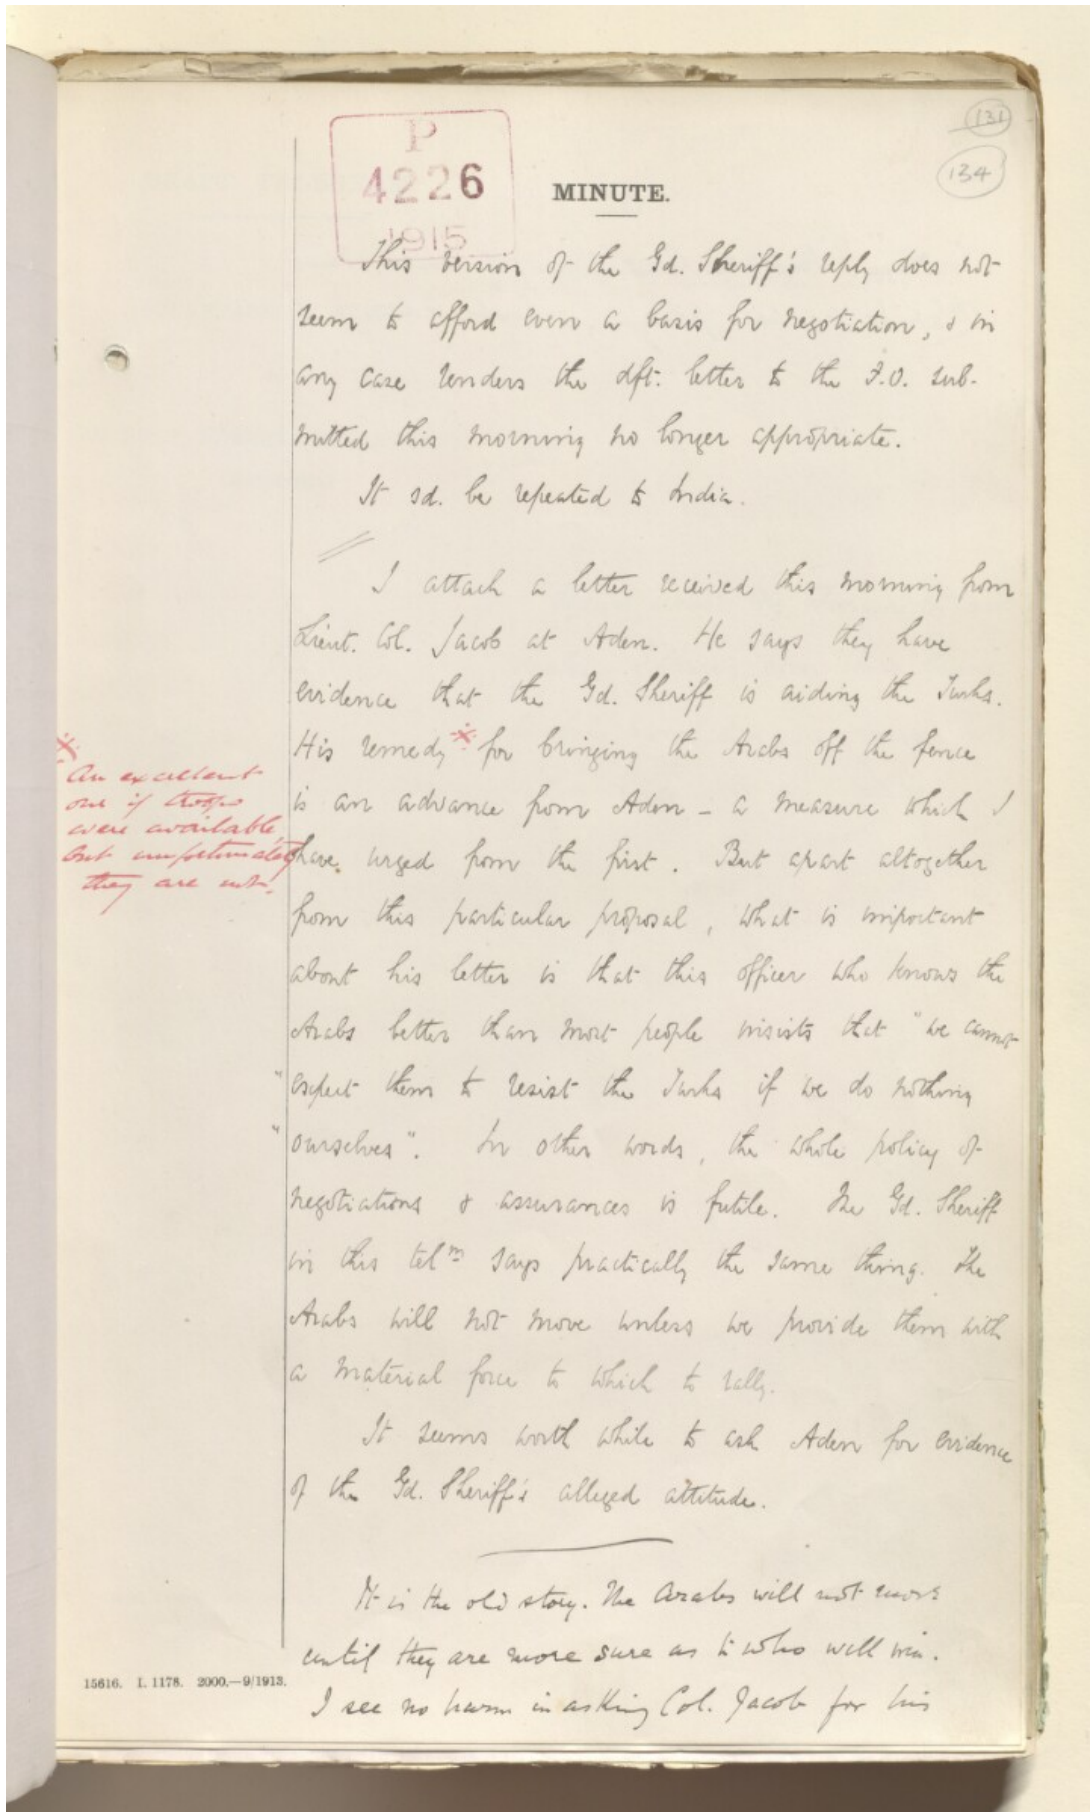 131
134
P
4226
1915
MINUTE.
This version of the Gd. Sheriff's reply does not
seem to afford even a basis for negotiation, & in
any case renders the dft. letter to the F.O. sub-
mitted this morning no longer appropriate.
It sd. be repeated to India.
I attach a letter received this morning from
Lieut. Col. Jacob at Aden. He says they have
evidence that the Gd. Sheriff is aiding the Turks.
His remedy * for bringing the Arabs off the fence
is an advance from Aden – a measure which I
have urged from the first. But apart altogether
from this particular proposal, what is important
about his letter is that this officer who knows the
Arabs better than most people insists that "we cannot
"expect them to resist the Turks if we do nothing
"ourselves". In other words, the whole policy of
negotiations & assurances is futile. The Gd. Sheriff
in this telm says practically the same thing. The
Arabs will not move unless we provide them with
a material force to which to rally.
It seems worth while to ask Aden for evidence
of the Gd. Sheriff's alleged attitude.
* An excellent
one if troops
were available,
but unfortunately
they are not.
It is the old story. The Arabs will not move
until they are more sure as to who will win.
I see no harm in asking Col. Jacob for his
15616. I. 1178. 2000.—9/1913.